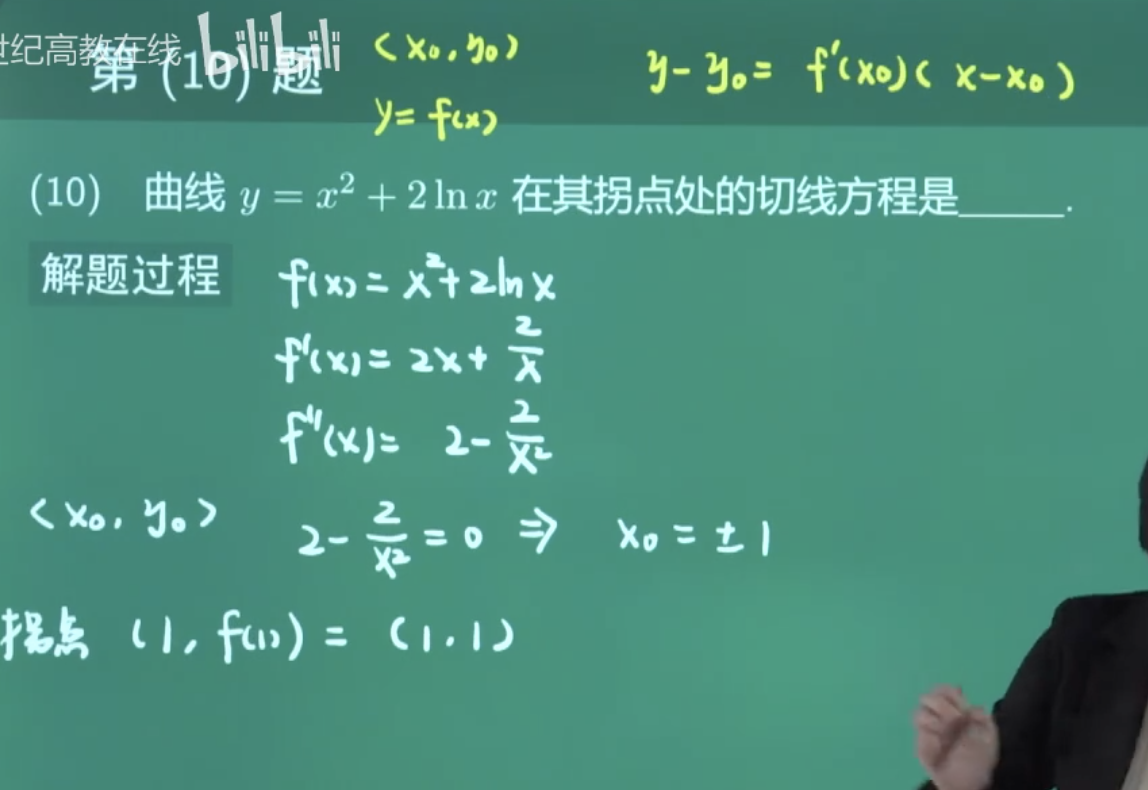 世纪高教在线 bilibili
第 (10) 题
(x₀, y₀)
y = f(x)
y - y₀ = f'(x₀)( x - x₀ )
(10) 曲线 y = x² + 2 ln x 在其拐点处的切线方程是_____.
解题过程
f(x) = x² + 2lnx
f'(x) = 2x + 2/x
f''(x) = 2 - 2/x²
(x₀, y₀)
2 - 2/x² = 0 ⇒ x₀ = ± 1
拐点 (1, f(1)) = (1, 1)